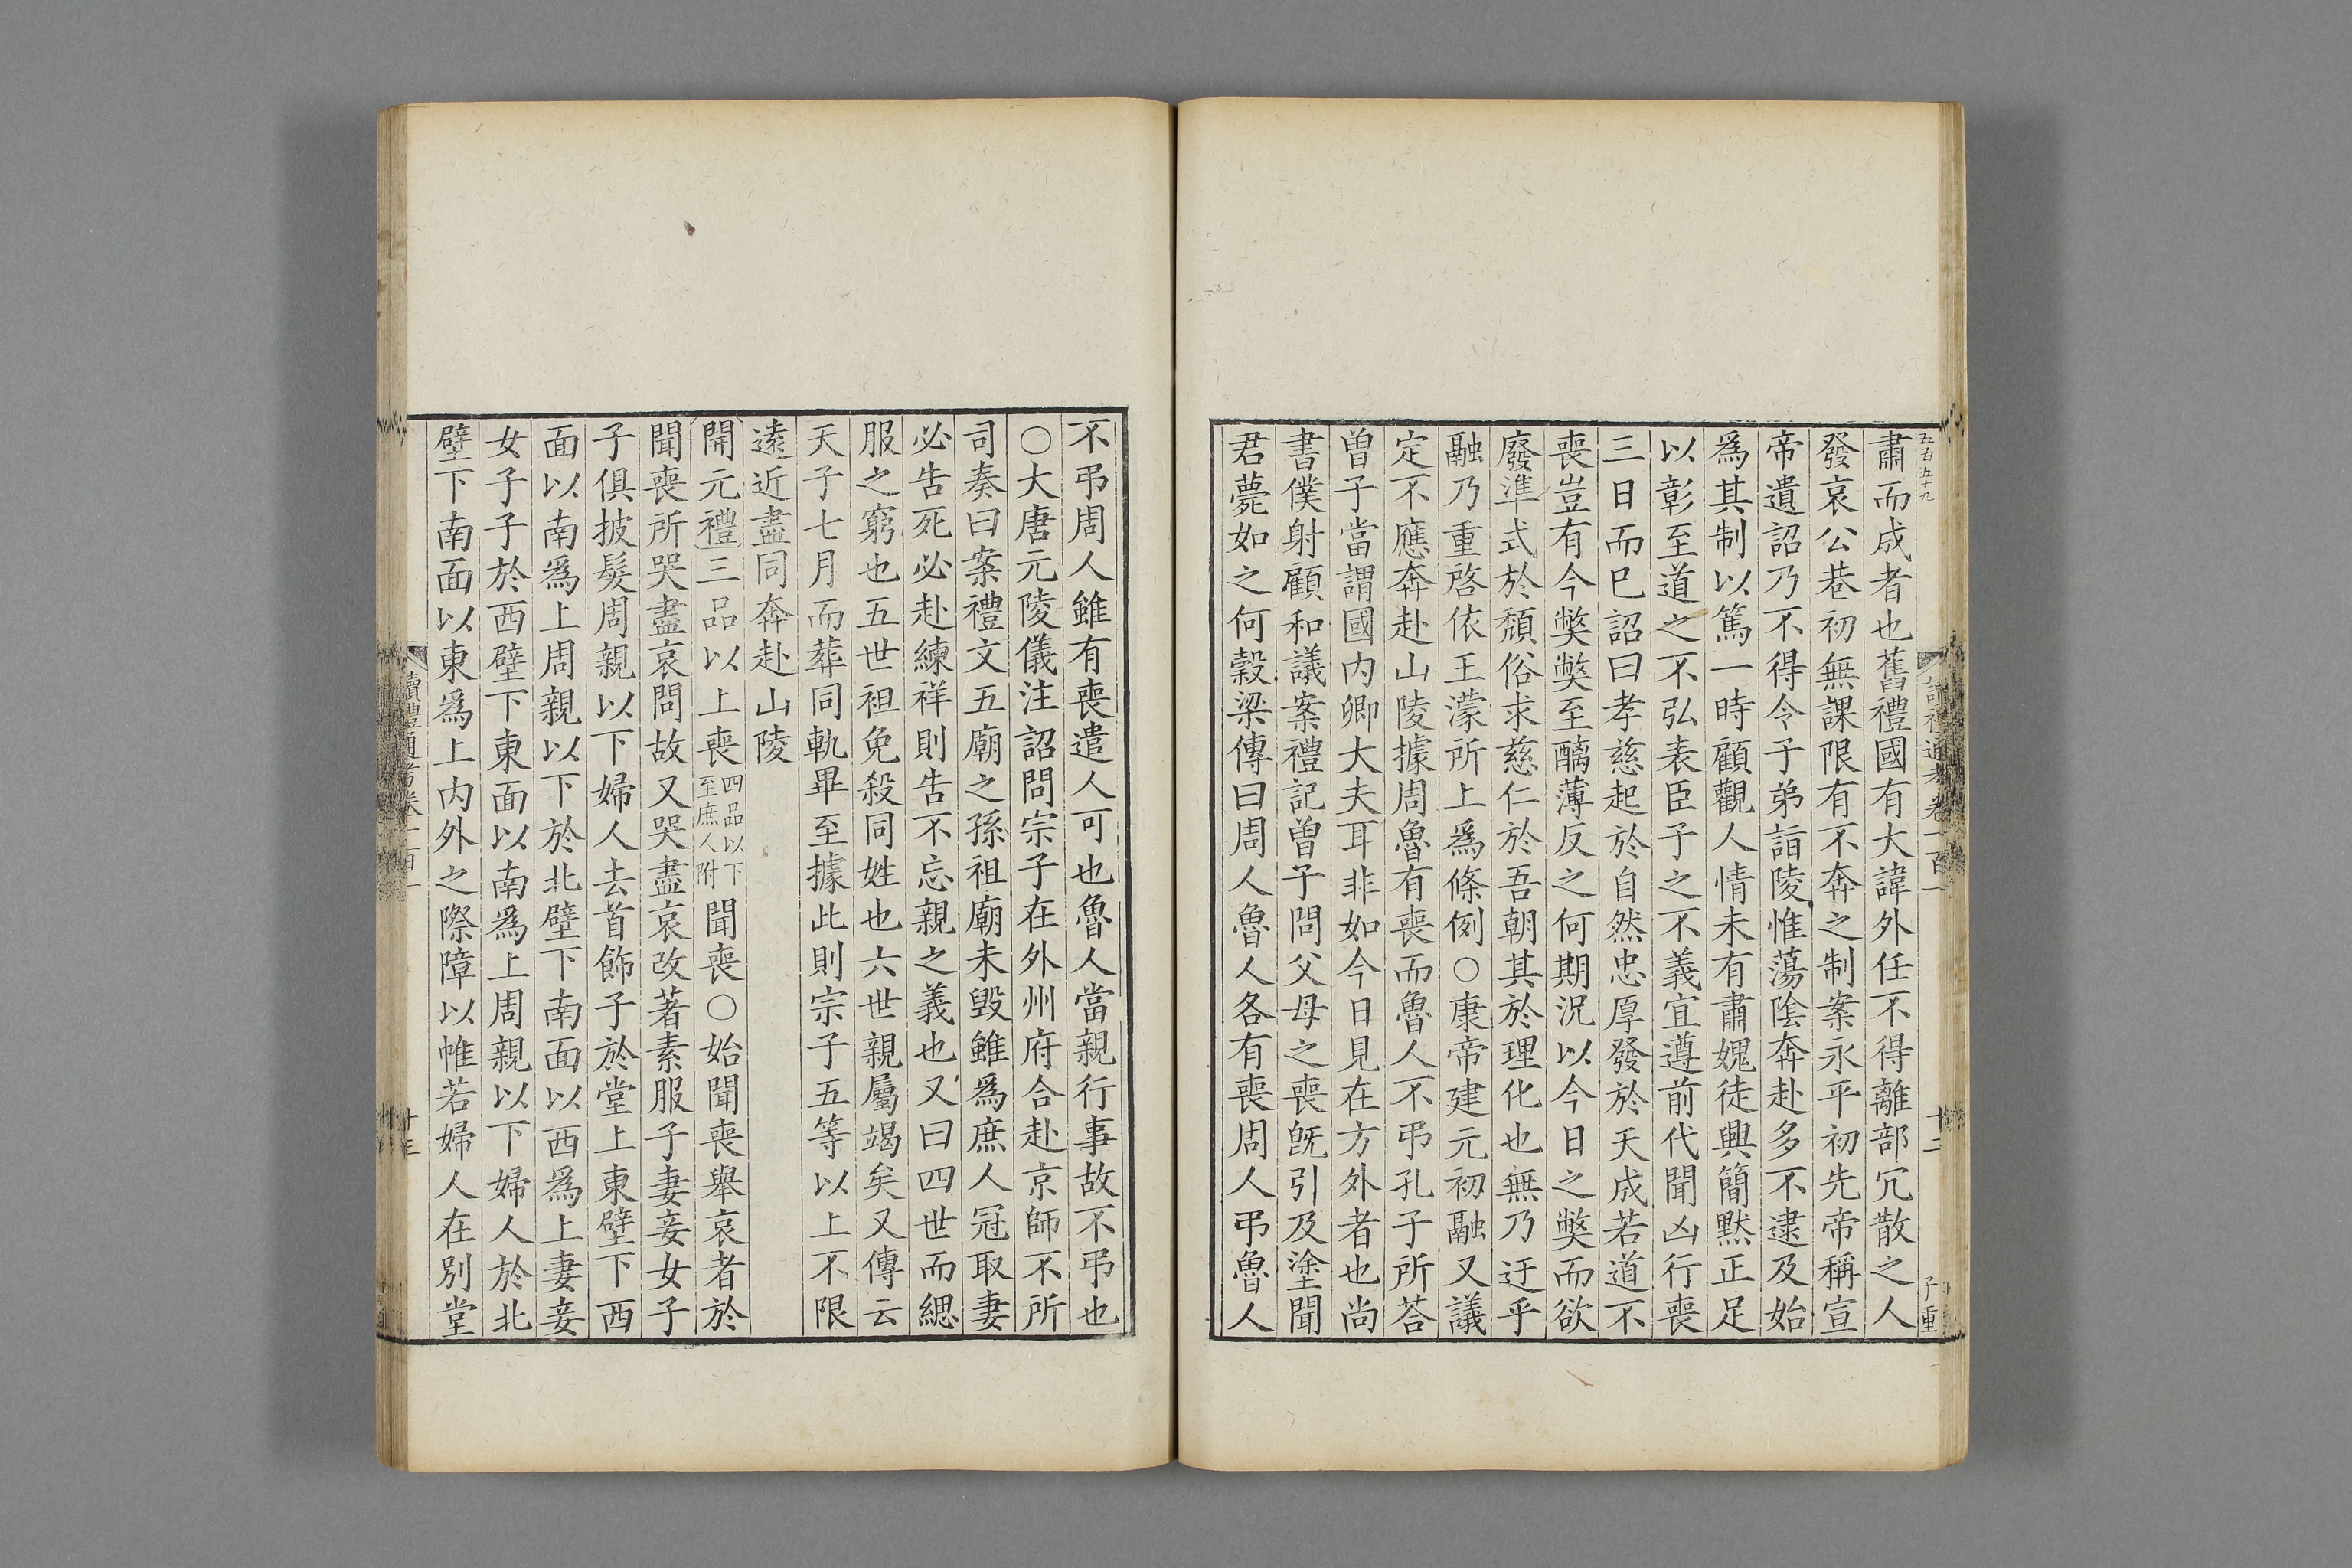 五百五十九
肅而成者也舊禮國有大諱外任不得離部冗散之人
發哀公巷初無課限有不奔之制案永平初先帝稱宣
帝遺詔乃不得令子弟詣陵惟蕩陰奔赴多不逮及始
爲其制以篤一時顧觀人情未有肅媿徒興簡黙正足
以彰至道之不弘表臣子之不義宜遵前代聞凶行喪
三日而已詔曰孝慈起於自然忠厚發於天成若道不
喪豈有今獘獘至醨薄反之何期況以今日之獘而欲
廢準式於頹俗求慈仁於吾朝其於理化也無乃迂乎
融乃重啓依王濛所上爲條例○康帝建元初融又議
定不應奔赴山陵據周魯有喪而魯人不弔孔子所荅
曾子當謂國内卿大夫耳非如今日見在方外者也尚
書僕射顧和議案禮記曾子問父母之喪旣引及塗聞
君薨如之何穀梁傳曰周人魯人各有喪周人弔魯人
不弔周人雖有喪遣人可也魯人當親行事故不弔也
○大唐元陵儀注詔問宗子在外州府合赴京師不所
司奏曰案禮文五廟之孫祖廟未毁雖爲庶人冠取妻
必告死必赴練祥則告不忘親之義也又曰四世而緦
服之窮也五世袒免殺同姓也六世親屬竭矣又傳云
天子七月而葬同軌畢至據此則宗子五等以上不限
遠近盡同奔赴山陵
開元禮三品以上喪四品以下至庶人附聞喪○始聞喪舉哀者於
聞喪所哭盡哀問故又哭盡哀改著素服子妻妾女子
子俱披髮周親以下婦人去首飾子於堂上東壁下西
面以南爲上周親以下於北壁下南面以西爲上妻妾
女子子於西壁下東面以南爲上周親以下婦人於北
壁下南面以東爲上内外之際障以帷若婦人在別堂
讀禮通考卷一百一
十三